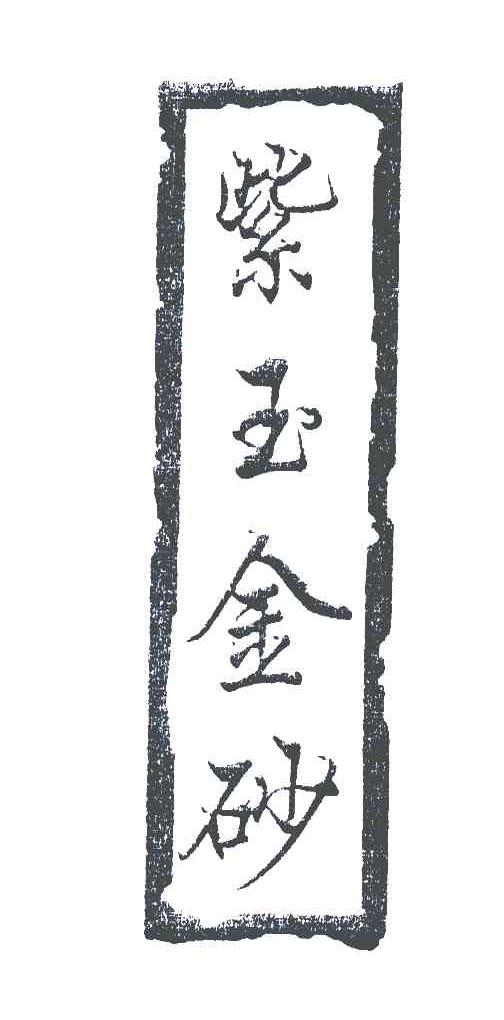 紫玉金砂